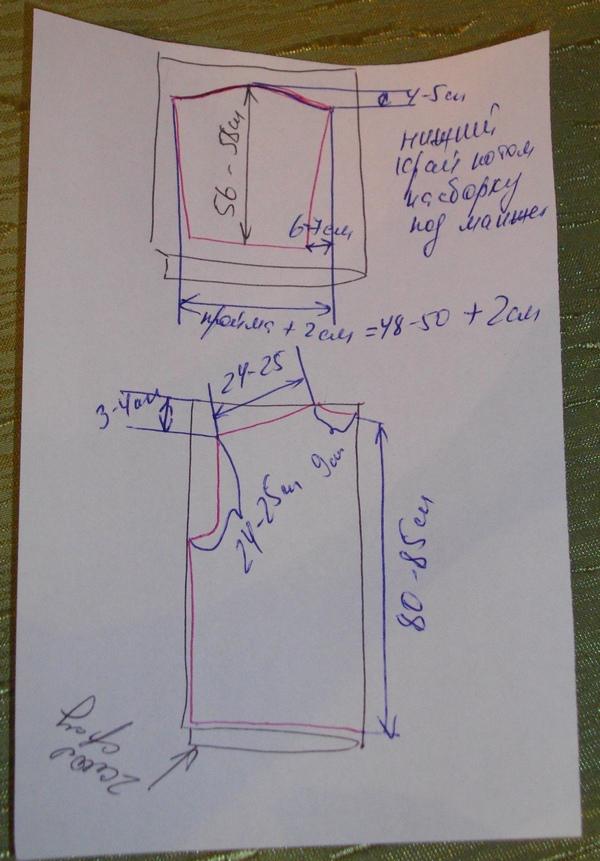 4-5см
нижний
край потом
на сборку
под манжет
56-58см
6-7см
пройма + 2см = 48-50 + 2см
24-25
3-4см
9см
24-25см
80-85см